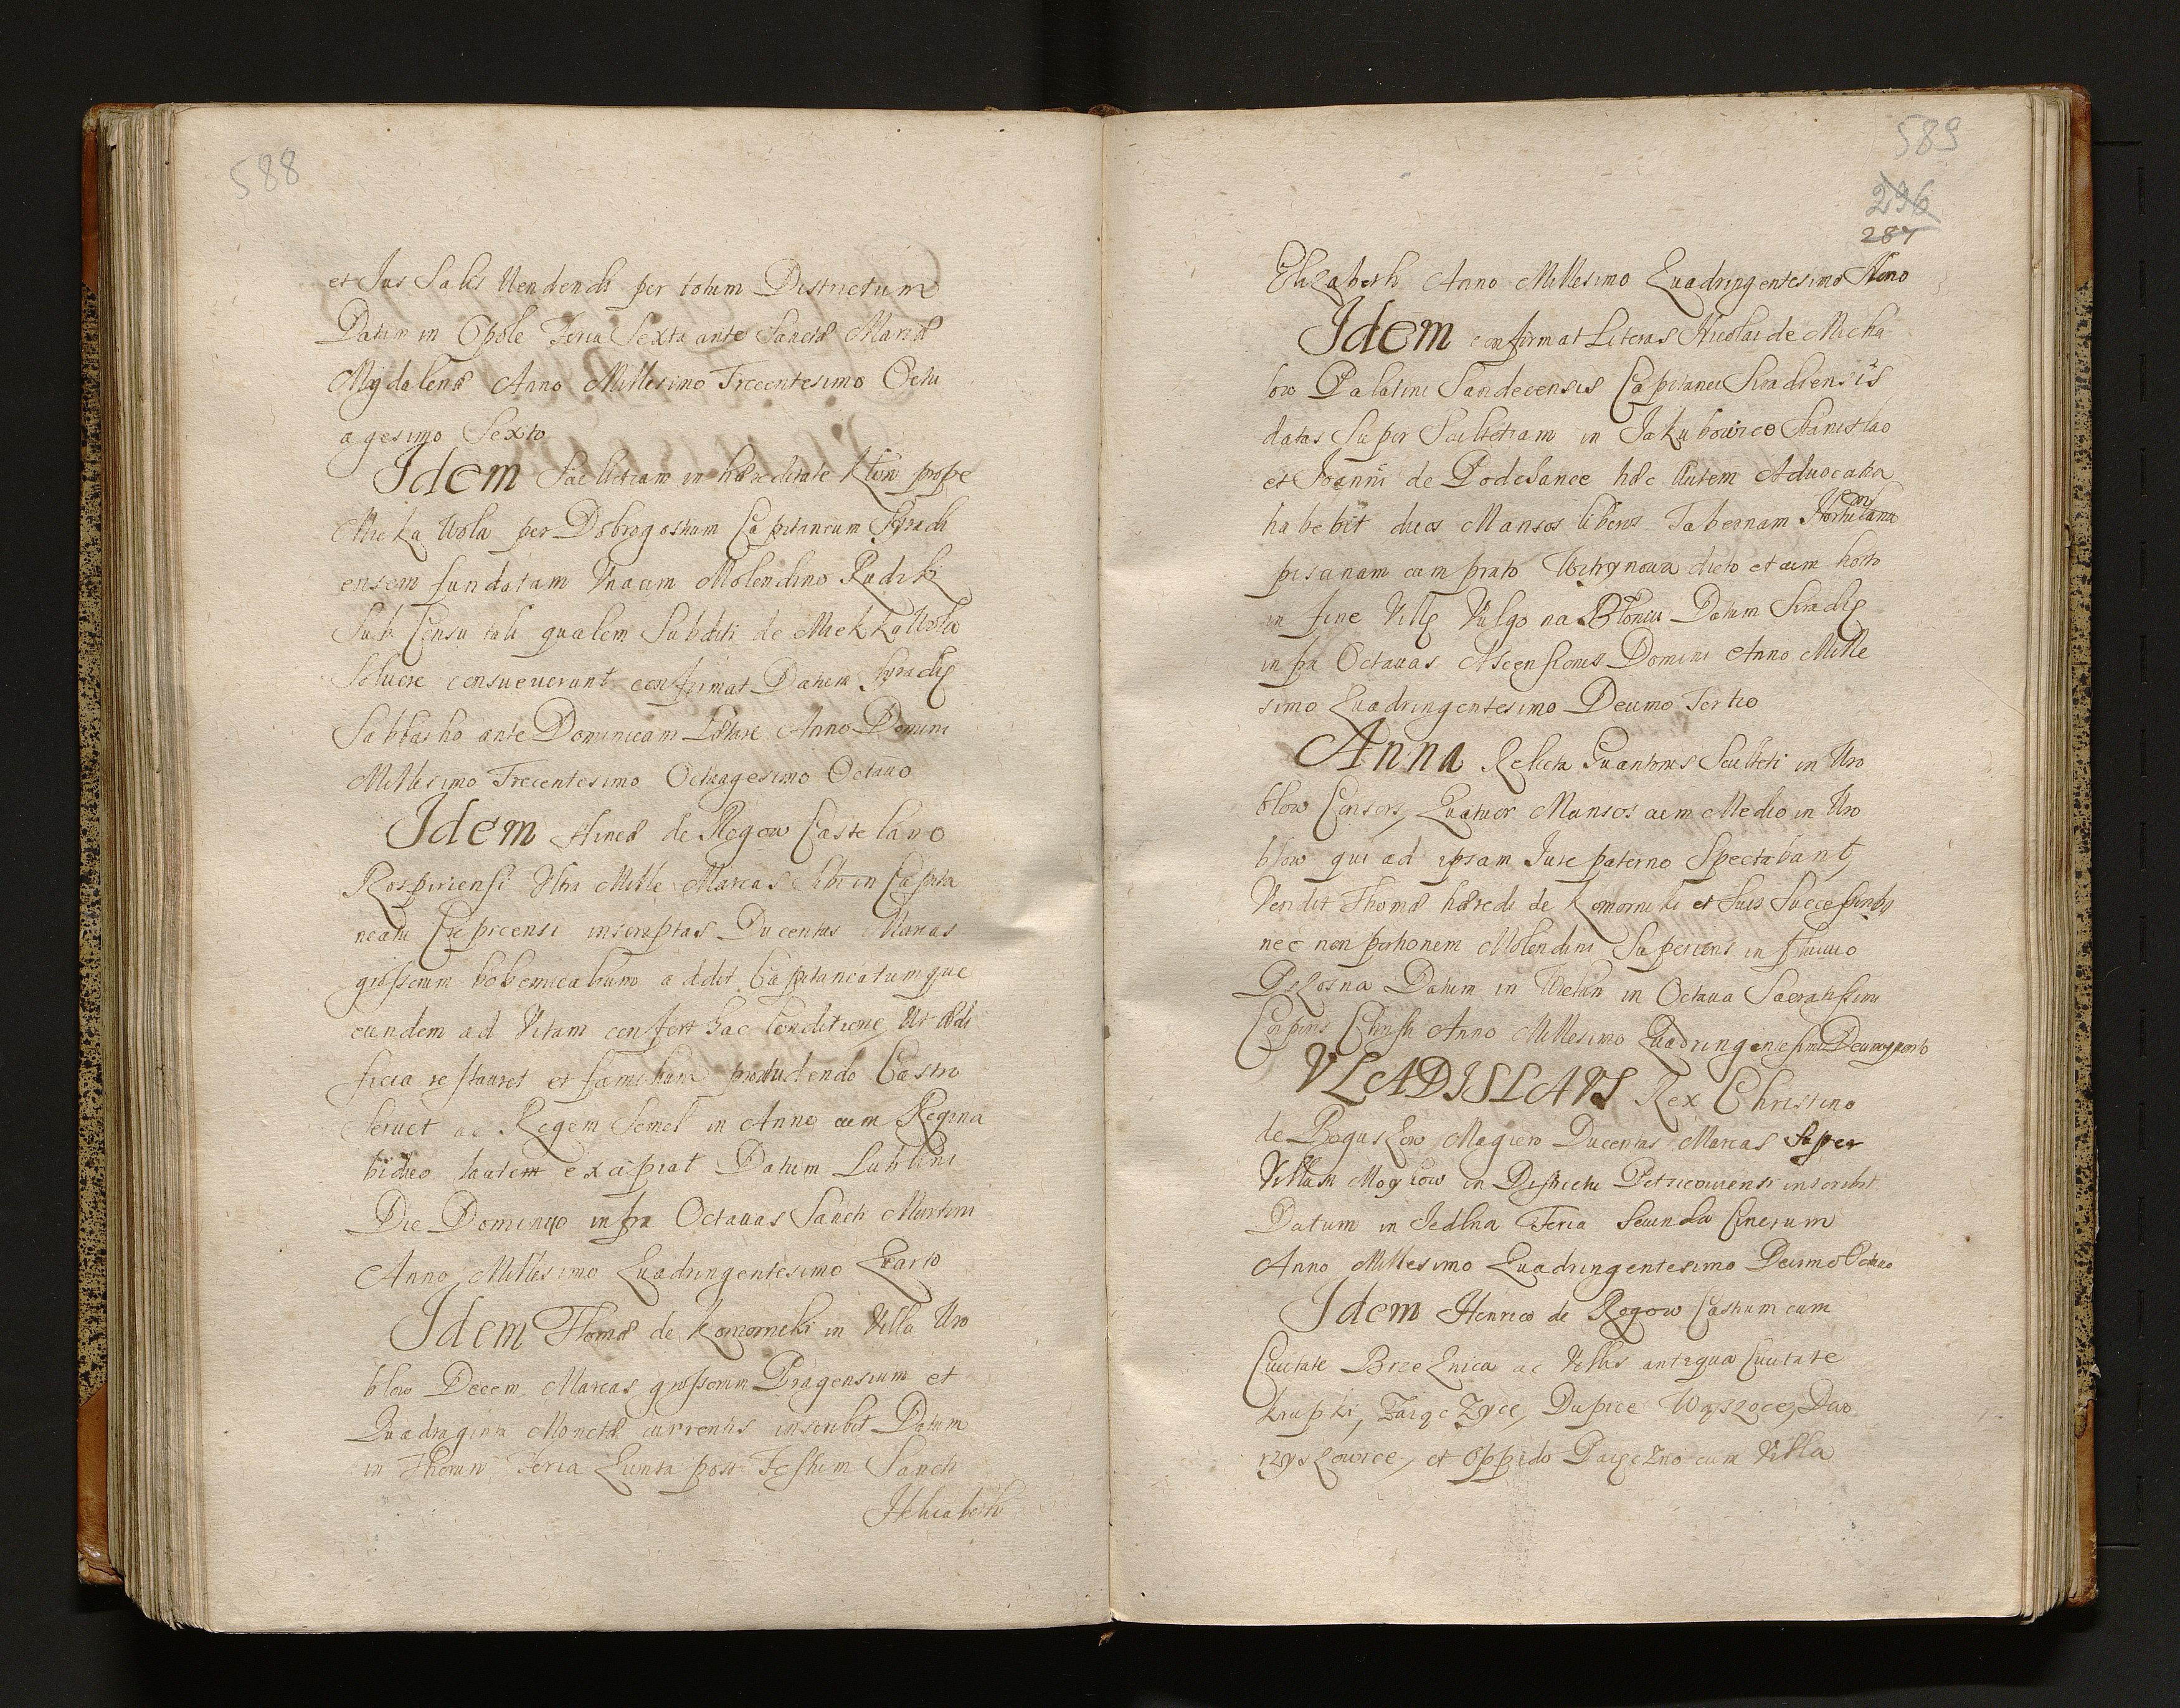 588
et Jus Salis Vendendi per totum Districtum
Datum in Opole Feria Sexta ante Sanctæ Mariæ
Mygdalenæ Anno Millesimo Trecentesimo Octu
agesimo Sexto
Idem Scultetiam in hæreditate Klin prope
Mieka Wola per Dobrogostium Capitaneum Syradi
ensem fundatam Vnacum Molendino Rudiki
Sub Censu tali qualem Subditi de Miekka Wola
Soluere consueuerunt confirmat Datum Syradię
Sabbatho ante Dominicam Lætare Anno Domini
Millesimo Trecentesimo Octuagesimo Octauo
Idem Hincæ de Rogow Castelano
Rospiriensi Vltra Mille Marcas sibi in Capita
neatu Crepicensi inscriptas Ducentas Marcas
grossorum bohemicalium addit Capitaneatumque
eundem ad Vitam confert hac Conditione, Ut ædi
ficia restauret et familiam pro Castro
Seruet ac Regem Semel in Anno cum Regina
biduo laute excipiat Datum Lublini
Die Dominico infra Octauas Sancti Martini
Anno Millesimo Quadringentesimo Quarto
Idem Thomæ de Komorniki in Villa Wro
blow Decem Marcas grossorum Pragensium et
Quadraginta Monetæ currentis inscribit Datum
in Thorun Feria Quinta post Festum Sancti
Helisabeth
589
296
287
Elizabeth Anno Millesimo Quadringentesimo Nono
Idem confirmat Literas Nicolai de Micha
low Palatini Sandecensis Capitanei Siradiensis
datas Super Scultetiam in Jakubowice Stanislao
et Joanni de Podesance hæc Autem Aduocatia
habebit duos Mansos liberos Tabernam
pisanam cum prato Wetrynowa dicto et cum horto
in fine Villę Vulgo na Bloniu Datum Siradię
infra Octauas Ascensionis Domini Anno Mille
simo Quadringentesimo Decimo Tertio
Anna Relicta Quantonis Sculteti in Wro
blow Consors, Quatuor Mansos cum Medio in Wro
blow qui ad ipsam Jure paterno Spectabant,
Vendit Thomæ hæredi de Komorniki et Suis Successoribus
nec non portionem Molendini Superioris in fluuio
Pyszna Datum in Welun in Octaua Sacratissimi
Corporis Christi Anno Millesimo Quadringentesimo Decimoquarto
VLADISLAVS Rex Christino
de Boguslow Magiero Ducentas Marcas Super
Villam Moykow in Districtu Petricouiensi inscribit
Datum in Jedlna Feria Secunda Cinerum
Anno Millesimo Quadringentesimo Decimo Octauo
Idem Henrico de Rogow Castrum cum
Ciuitate Brzeznica ac Villis antiqua Ciuitate
Krupki, Zaięczyce, Dupice Wąszoce, Dwo
rzyszowice, et Oppido Paięczno cum Villa